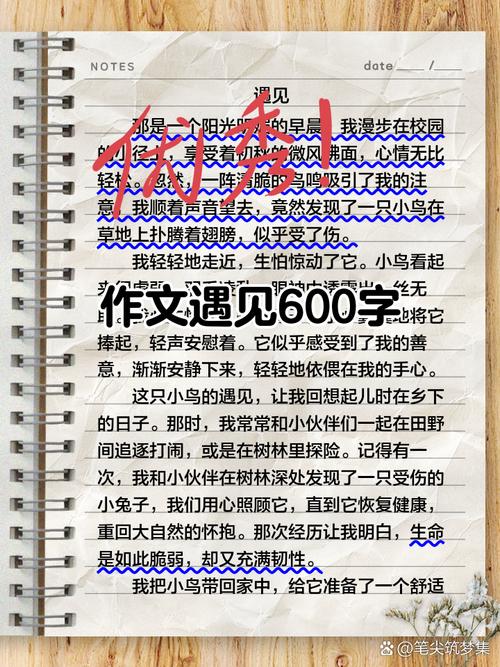 NOTES date ___/___
遇见
优秀!
那是一个阳光明媚的早晨，我漫步在校园
的小径上，享受着初秋的微风拂面，心情无比
轻松。忽然，一阵清脆的鸟鸣吸引了我的注
意。我顺着声音望去，竟然发现了一只小鸟在
草地上扑腾着翅膀，似乎受了伤。
我轻轻地走近，生怕惊动了它。小鸟看起
作文遇见600字
地将它
捧起，轻声安慰着。它似乎感受到了我的善
意，渐渐安静下来，轻轻地依偎在我的手心。
这只小鸟的遇见，让我回想起儿时在乡下
的日子。那时，我常常和小伙伴们一起在田野
间追逐打闹，或是在树林里探险。记得有一
次，我和小伙伴在树林深处发现了一只受伤的
小兔子，我们用心照顾它，直到它恢复健康，
重回大自然的怀抱。那次经历让我明白，生命
是如此脆弱，却又充满韧性。
我把小鸟带回家中，给它准备了一个舒适
笔尖筑梦集